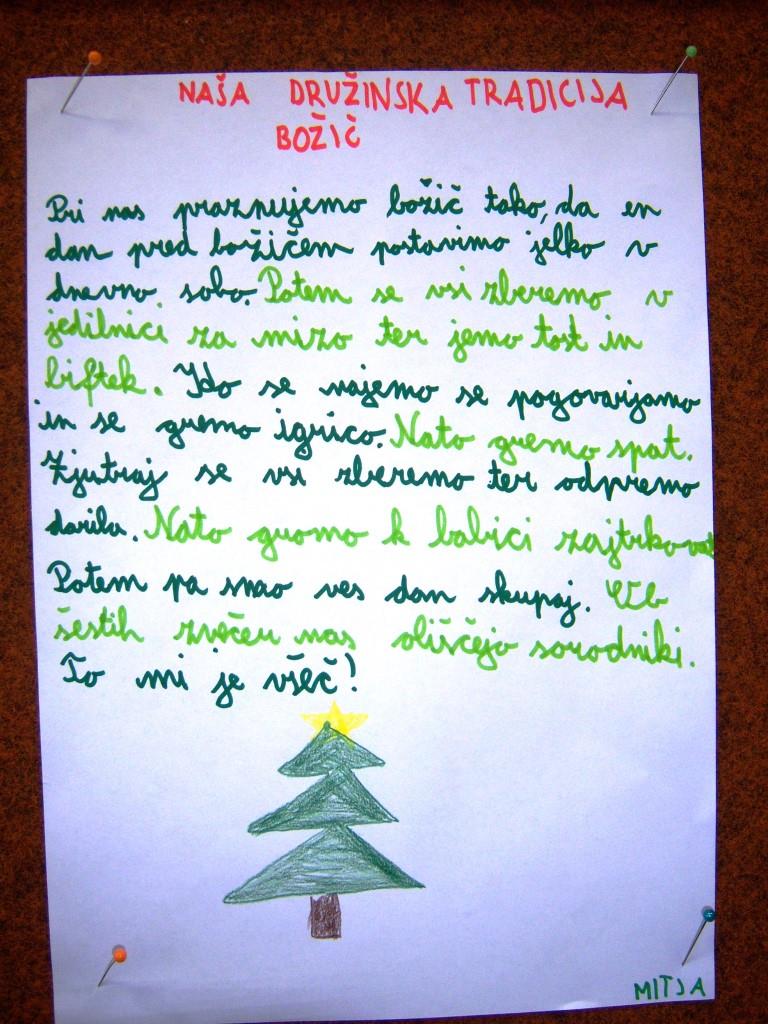 NAŠA DRUŽINSKA TRADICIJA
BOŽIČ
Pri nas praznujemo božič tako, da en
dan pred božičem postavimo jelko v
dnevno sobo. Potem se vsi zberemo v
jedilnici za mizo ter jemo tost in
biftek. Ido se najemo se pogovarjamo
in se gremo igrico. Nato gremo spat.
Zjutraj se vsi zberemo ter odpremo
darila. Nato gremo k babici zajtrkovat
Potem pa smo ves dan skupaj. Ob
šestih zvečer nas obiščejo sorodniki.
To mi je všeč!
MITJA